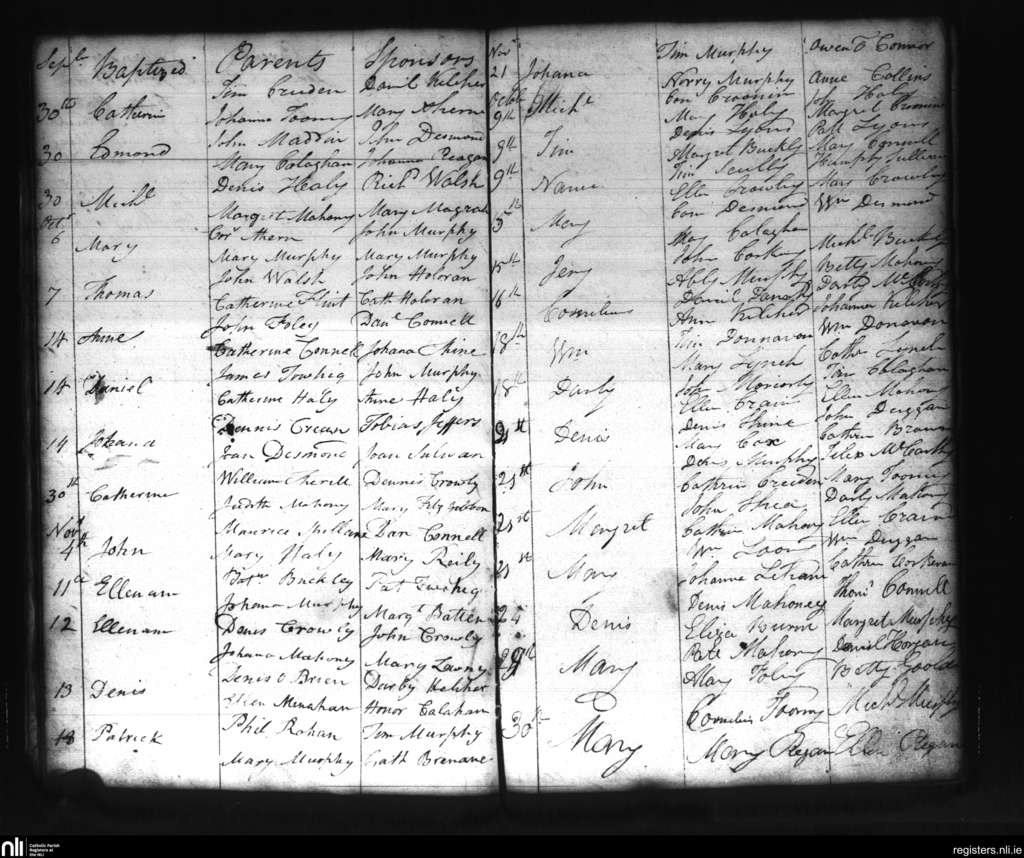 Septr Baptized Parents Sponsors
Tim Creeden Danil Kelcher
30th Catherine
Johanna Toomy Mary Ahern
John Maddin John Desmond
30 Edmond
Mary Calaghan Johanna Reagan
Denis Healy Richd Walsh
30 Michl
Margret Mahony Mary Magrath
Octr
6 Mary Cors Ahern John Murphy
Mary Murphy Mary Murphy
7 Thomas John Walsh John Holoran
Catherine Flint Cath Holoran
14 Anne John Foley Danl Connell
Catherine Connell Johana Shine
14 Daniel James Towhig John Murphy
Catherine Haly Anne Haly
14 Johana Dennis Crean Tobias Jeffers
Joan Desmond Joan Sulivan
30th Catherine William Sherell Dennis Crowly
Judith Mahony Mary Fitzgibbon
Novr
4th John Maurice Spillane Dan Connell
Mary Haly Mary Reily
11th Ellenam Patr Buckley Pat Twohig
Johana Murphy Margt Batten
12 Ellenam Denis Crowly John Crowly
Johana Mahony Mary Lawney
13 Denis Denis O Brien Darby Kelcher
Ellen Menahan Honor Calahan
18 Patrick Phil Rahan Tim Murphy
Mary Murphy Cath Brenane
Novr
21 Johana Tim Murphy Owen O Connor
Norry Murphy Anne Collins
Octbr
9th Michl Con Cronin John Haly
Mary Haly Margret Cronin
9th Tim Denis Lyons Patt Lyons
Margret Buckly Mary Connell
9th Nance Tim Scully Humphy Sullivan
Ellen Crowly Mary Crowly
15th Mary Con Desmond Wm Desmond
Mary Calaghan
15th Jery John Corkery Michl Buckly
Abby Murphy Betty Mahony
16th Cornelius Danil Darby McCarthy
Ann Kelcher Johanna Kelcher
18th Wm Tim Donnavon Wm Donavon
Mary Lynch Cathn Lynch
18th Darly John Moriarty Tim Calaghan
Ellen Crain Ellen Mahony
21st Denis Denis Shine John Duggan
Mary Cox Cathrin Brown
21st John Denis Murphy Felix McCarthy
Cathrin Creeden Mary Toomy
21st Margret John Shea Darly Mahony
Cathrin Mahony Ellen Crain
21st Mary Wm Wm Duggan
Johanna Lehane Cathrin Corkeran
24 Denis Denis Mahoney Thoms Connell
Eliza Burne Margret Murphy
29th Mary Patt Mahony Daniel Horgan
Mary Foley Betty Goold
30th Mary Cornelius Toomy Michl Murphy
Mary Regan Ellen Regan
nli Catholic Parish
Registers at
the NLI
registers.nli.ie